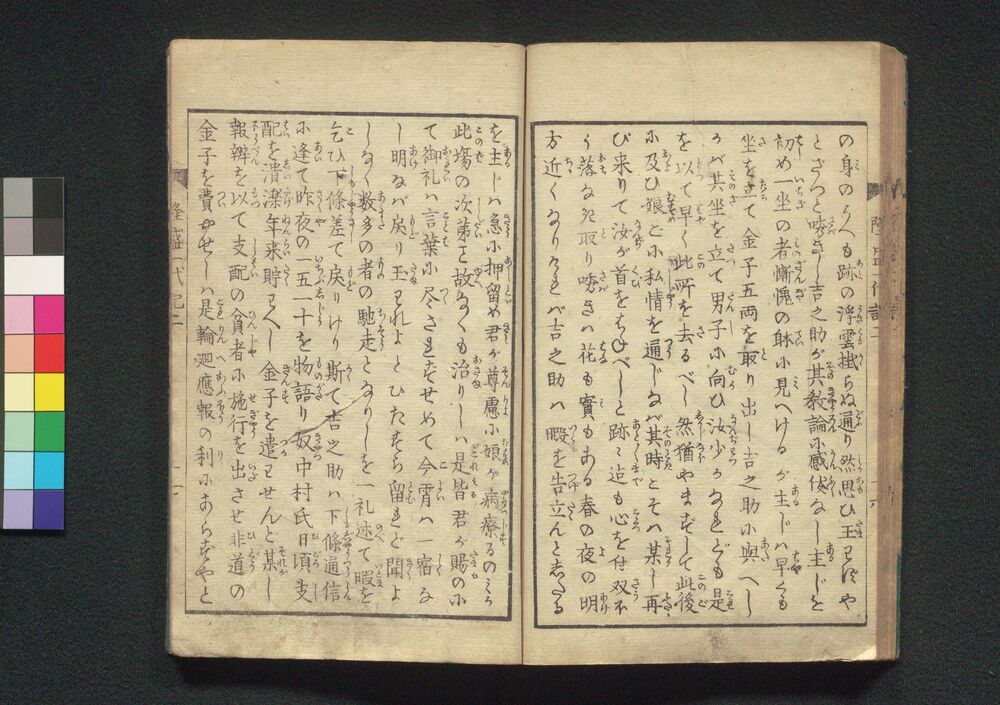 の身のうへも跡の浮雲残らぬ通り然思ひ玉はずや
とざつと囁きし吉之助が其教諭に感伏なし主じを
初め一坐の者慚愧の躰に見へけるが主じは早くも
坐を立て金子五両を取り出し吉之助に與へし
かば其坐を立て男子に向ひ汝少かなれども是
を以て早く此所を去るべし然猶やまずして此後
に及び娘と私情を通じなば其時こそは某し再
び来りて汝が首をはぬべしと跡々迄も心を付双方
う落な処取り囁きは花も實もある春の夜の明
方近くなりければ吉之助は暇を告立んとしたる
を主じは急に押留め君が尊慮に娘が病療るのミか
此場の次第を故なくも治りしは是皆君が賜のに
て御礼は言葉に尽されずせめて今宵は一宿な
し明なば戻り玉はれよとひたすら留れど聞よ
しなく数多の者の馳走となりしを一礼述て暇を
乞ひ下條差て戻りけり斯て吉之助は下條通信
に逢て昨夜の一五一十を物語り奴中村氏日頃支
配を潰楽年来貯はへし金子を遣はせんと某し
報辨を以て支配の貧者に施行を出させ非道の
金子を費かせしは是輪廻應報の利にあらずやと
隆盛一代記二